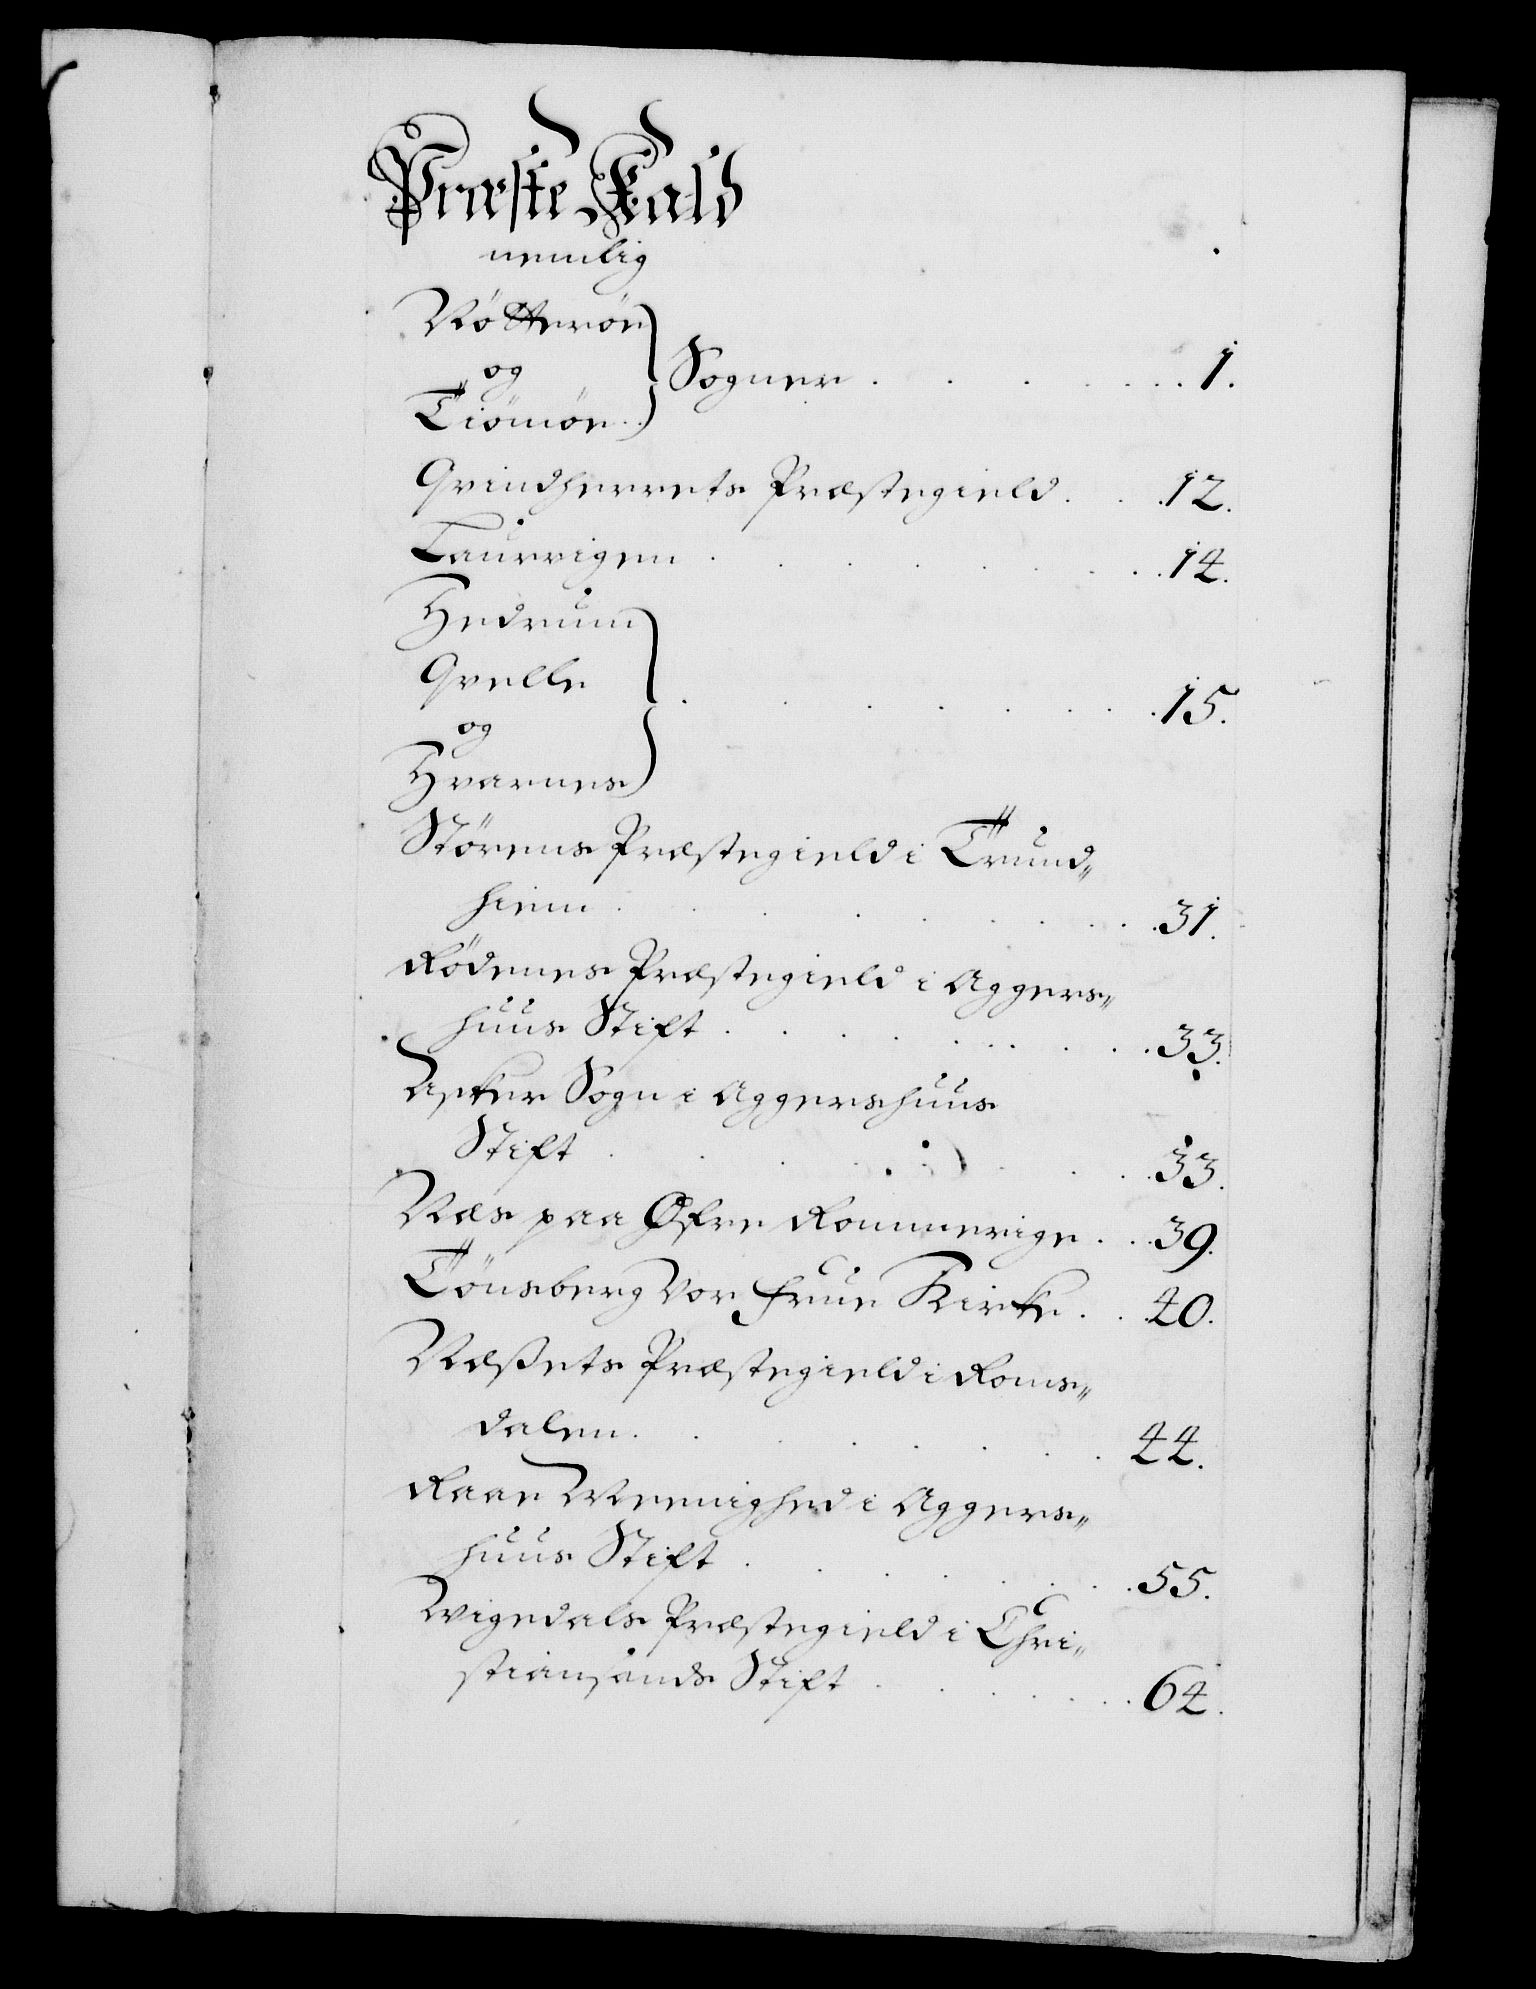 Præste Kald
nemlig
Nötterön
og
Tiömön
Sogner . . . . . . . . 1.
Qvindherrets Præstegield . . 12.
Laurvigen . . . . . . . . 14.
Hedrum
Qvelle
og
Hvarnes
. . . . . . . . 15.
Störens Præstegield i Trund„
hiem . . . . . . . . 31.
Rödenes Præstegield i Aggers„
huus Stift . . . . . . . . 33.
Asker Sogn i Aggershuus
Stift . . . . . . . . 33.
Næs paa Øfre Rommerige . . . 39.
Tönsberg Vor Frue Kirke . . . 40.
Næßets Præstegield i Roms„
dalen . . . . . . . 44.
Raae Meenighed i Aggers„
huus Stift . . . . . . . 55.
Vigedals Præstegield i Chri„
stiansands Stift . . . . . . 64.